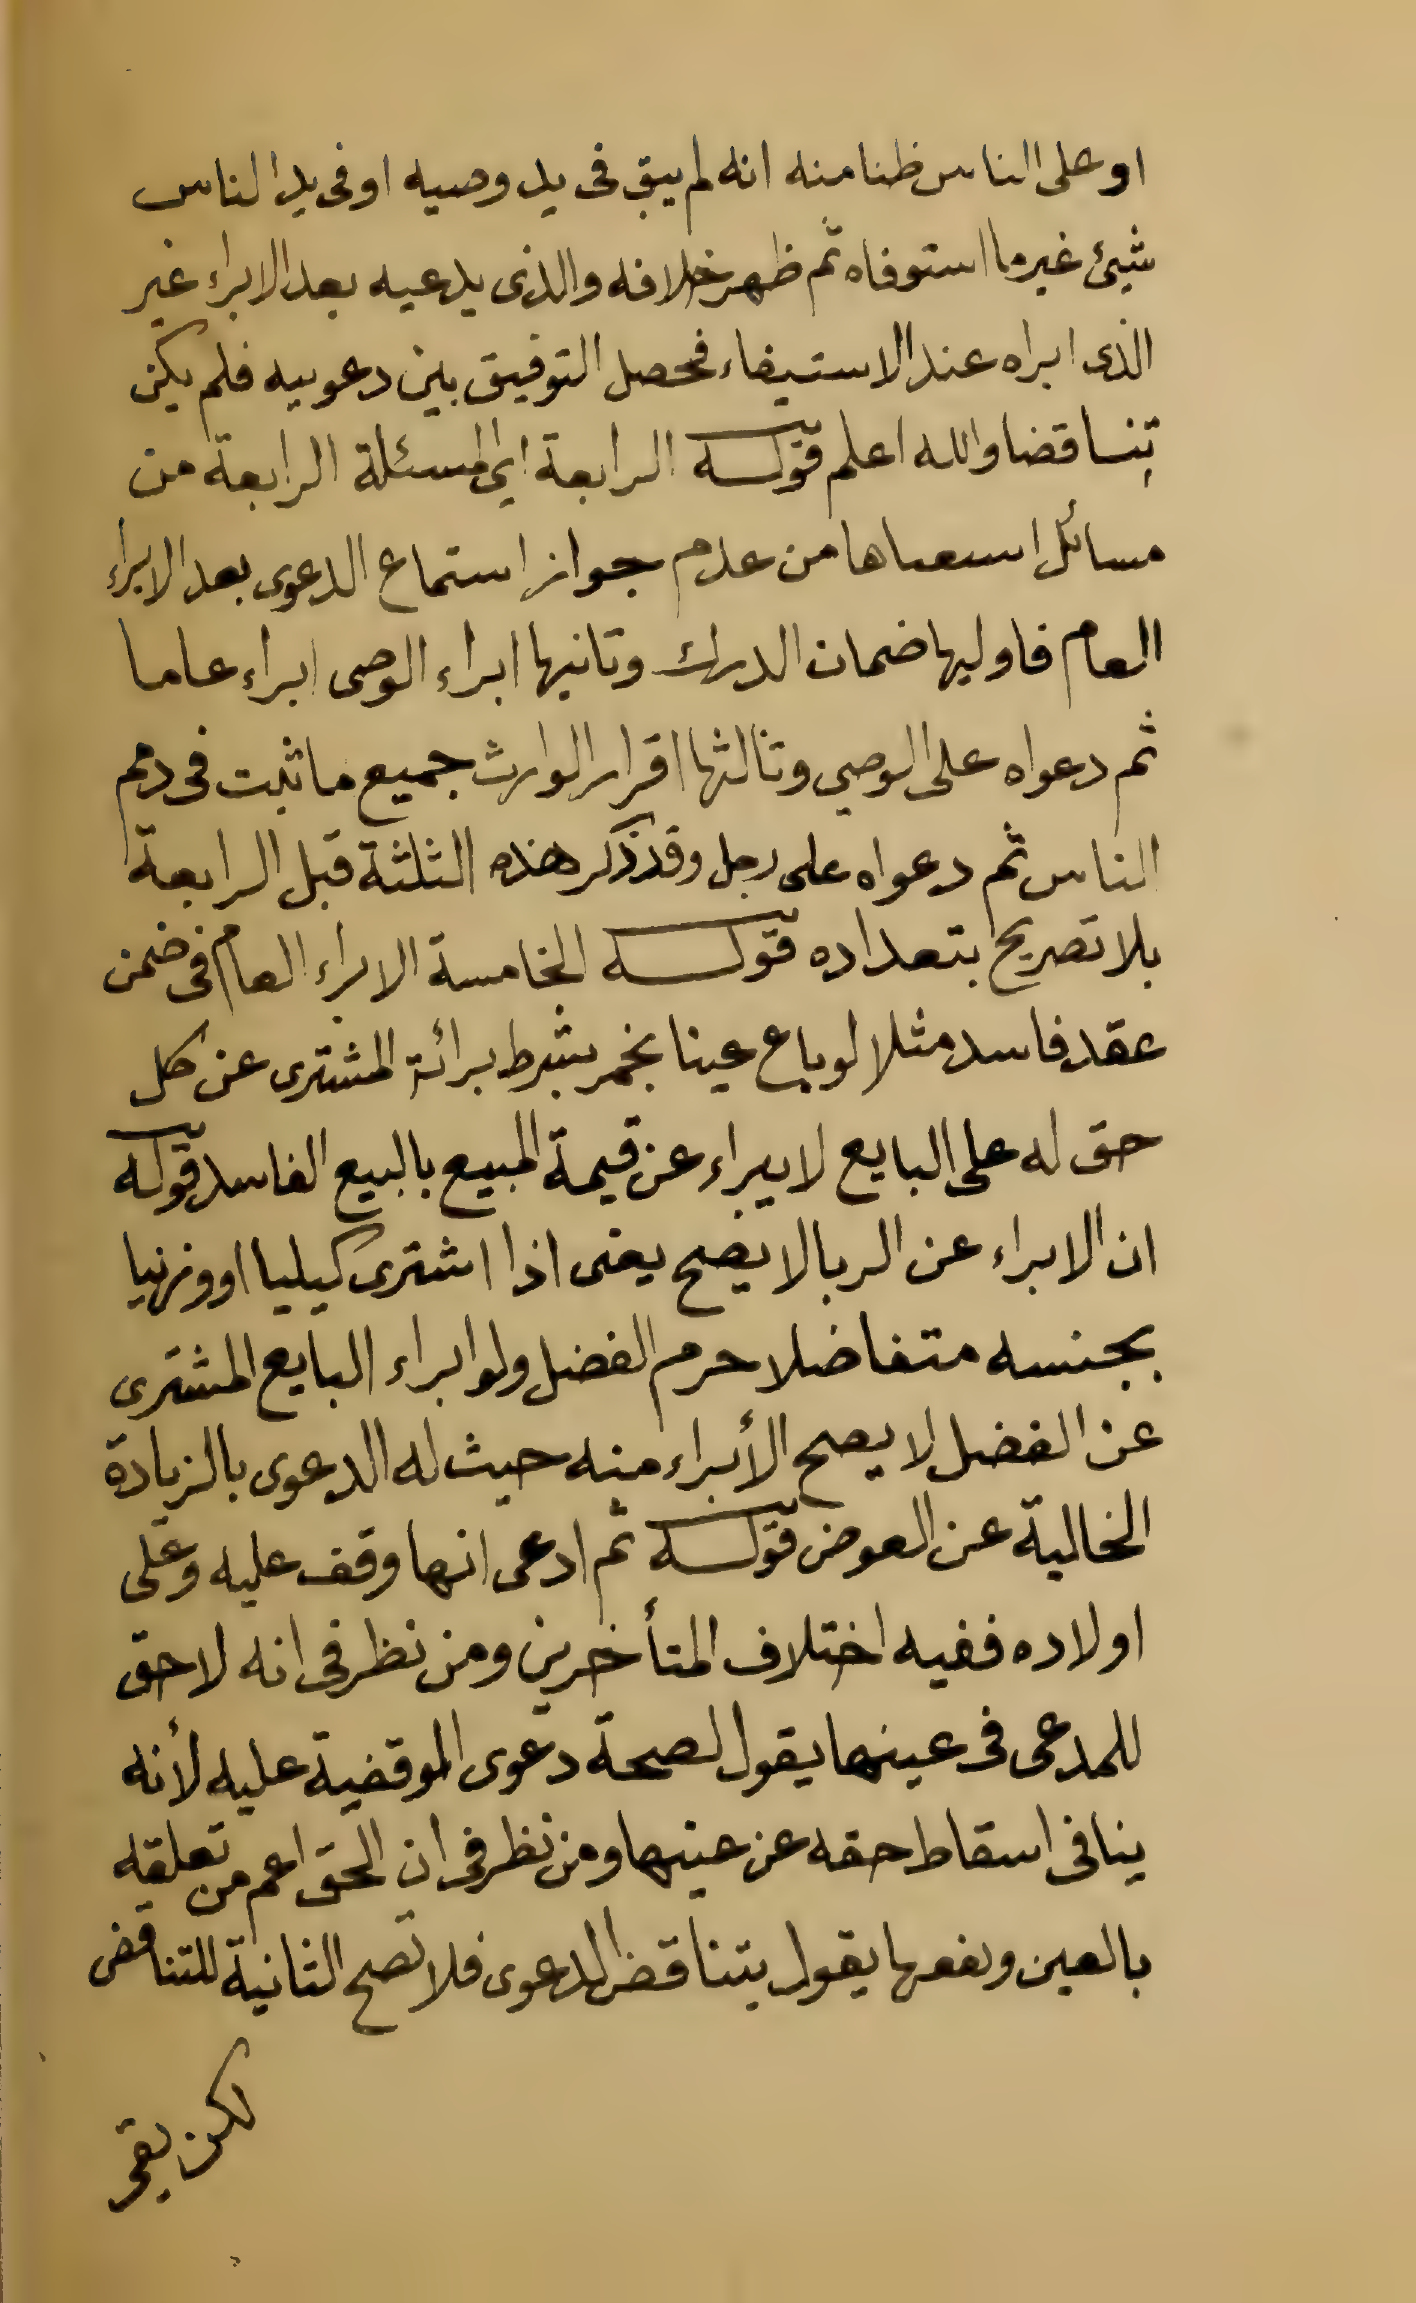 او على الناس ظنا منه انه لم يبق فى يد وصيه او فى يد الناس
شيئ غير ما استوفاه ثم ظهر خلافه والذى يدعيه بعد الابراء غير
الذى ابراه عند الاستيفاء فحصل التوفيق بين دعوييه فلم يكن
تناقضا والله اعلم قوله الرابعة اى المسئلة الرابعة من
مسائل من عدم جواز استماع الدعوى بعد الابراء
العام فاوليها ضمان الدرك وثانيها ابراء الوصى ابراء عاما
ثم دعواه على الوصى وثالثها اقرار الوارث جميع ما ثبت فى دمم
الناس ثم دعواه على رجل وقد ذكر هذه الثلثة قبل الرابعة
بلا تصريح بتعداده قوله الخامسة الابراء العام فى ضمن
عقد فاسد مثلا لو باع عينا بخمر بشرط برائة المشترى عن كل
حق له على البايع لا يبراء عن قيمة المبيع بالبيع الفاسد قوله
ان الابراء عن الربا لا يصح يعنى اذا اشترى كيليا او وزنيا
بجنسه متفاضلا حرم الفضل ولو ابراء البايع المشترى
عن الفضل لا يصح الأبراء منه حيث له الدعوى بالزيادة
الخالية عن العوض قوله ثم ادعى انها وقف عليه وعلى
اولاده ففيه اختلاف المتأخرين ومن نظر فى انه لا حق
للمدعى فى عينها يقول لصحة دعوى الموقفية عليه لأنه
ينافى اسقاط حقه عن عينها ومن نظر فى ان الحق اعم من تعلقه
بالعين ونفعها يقول بتناقض الدعوى فلا تصح الثانية للتناقض
لكن بقى